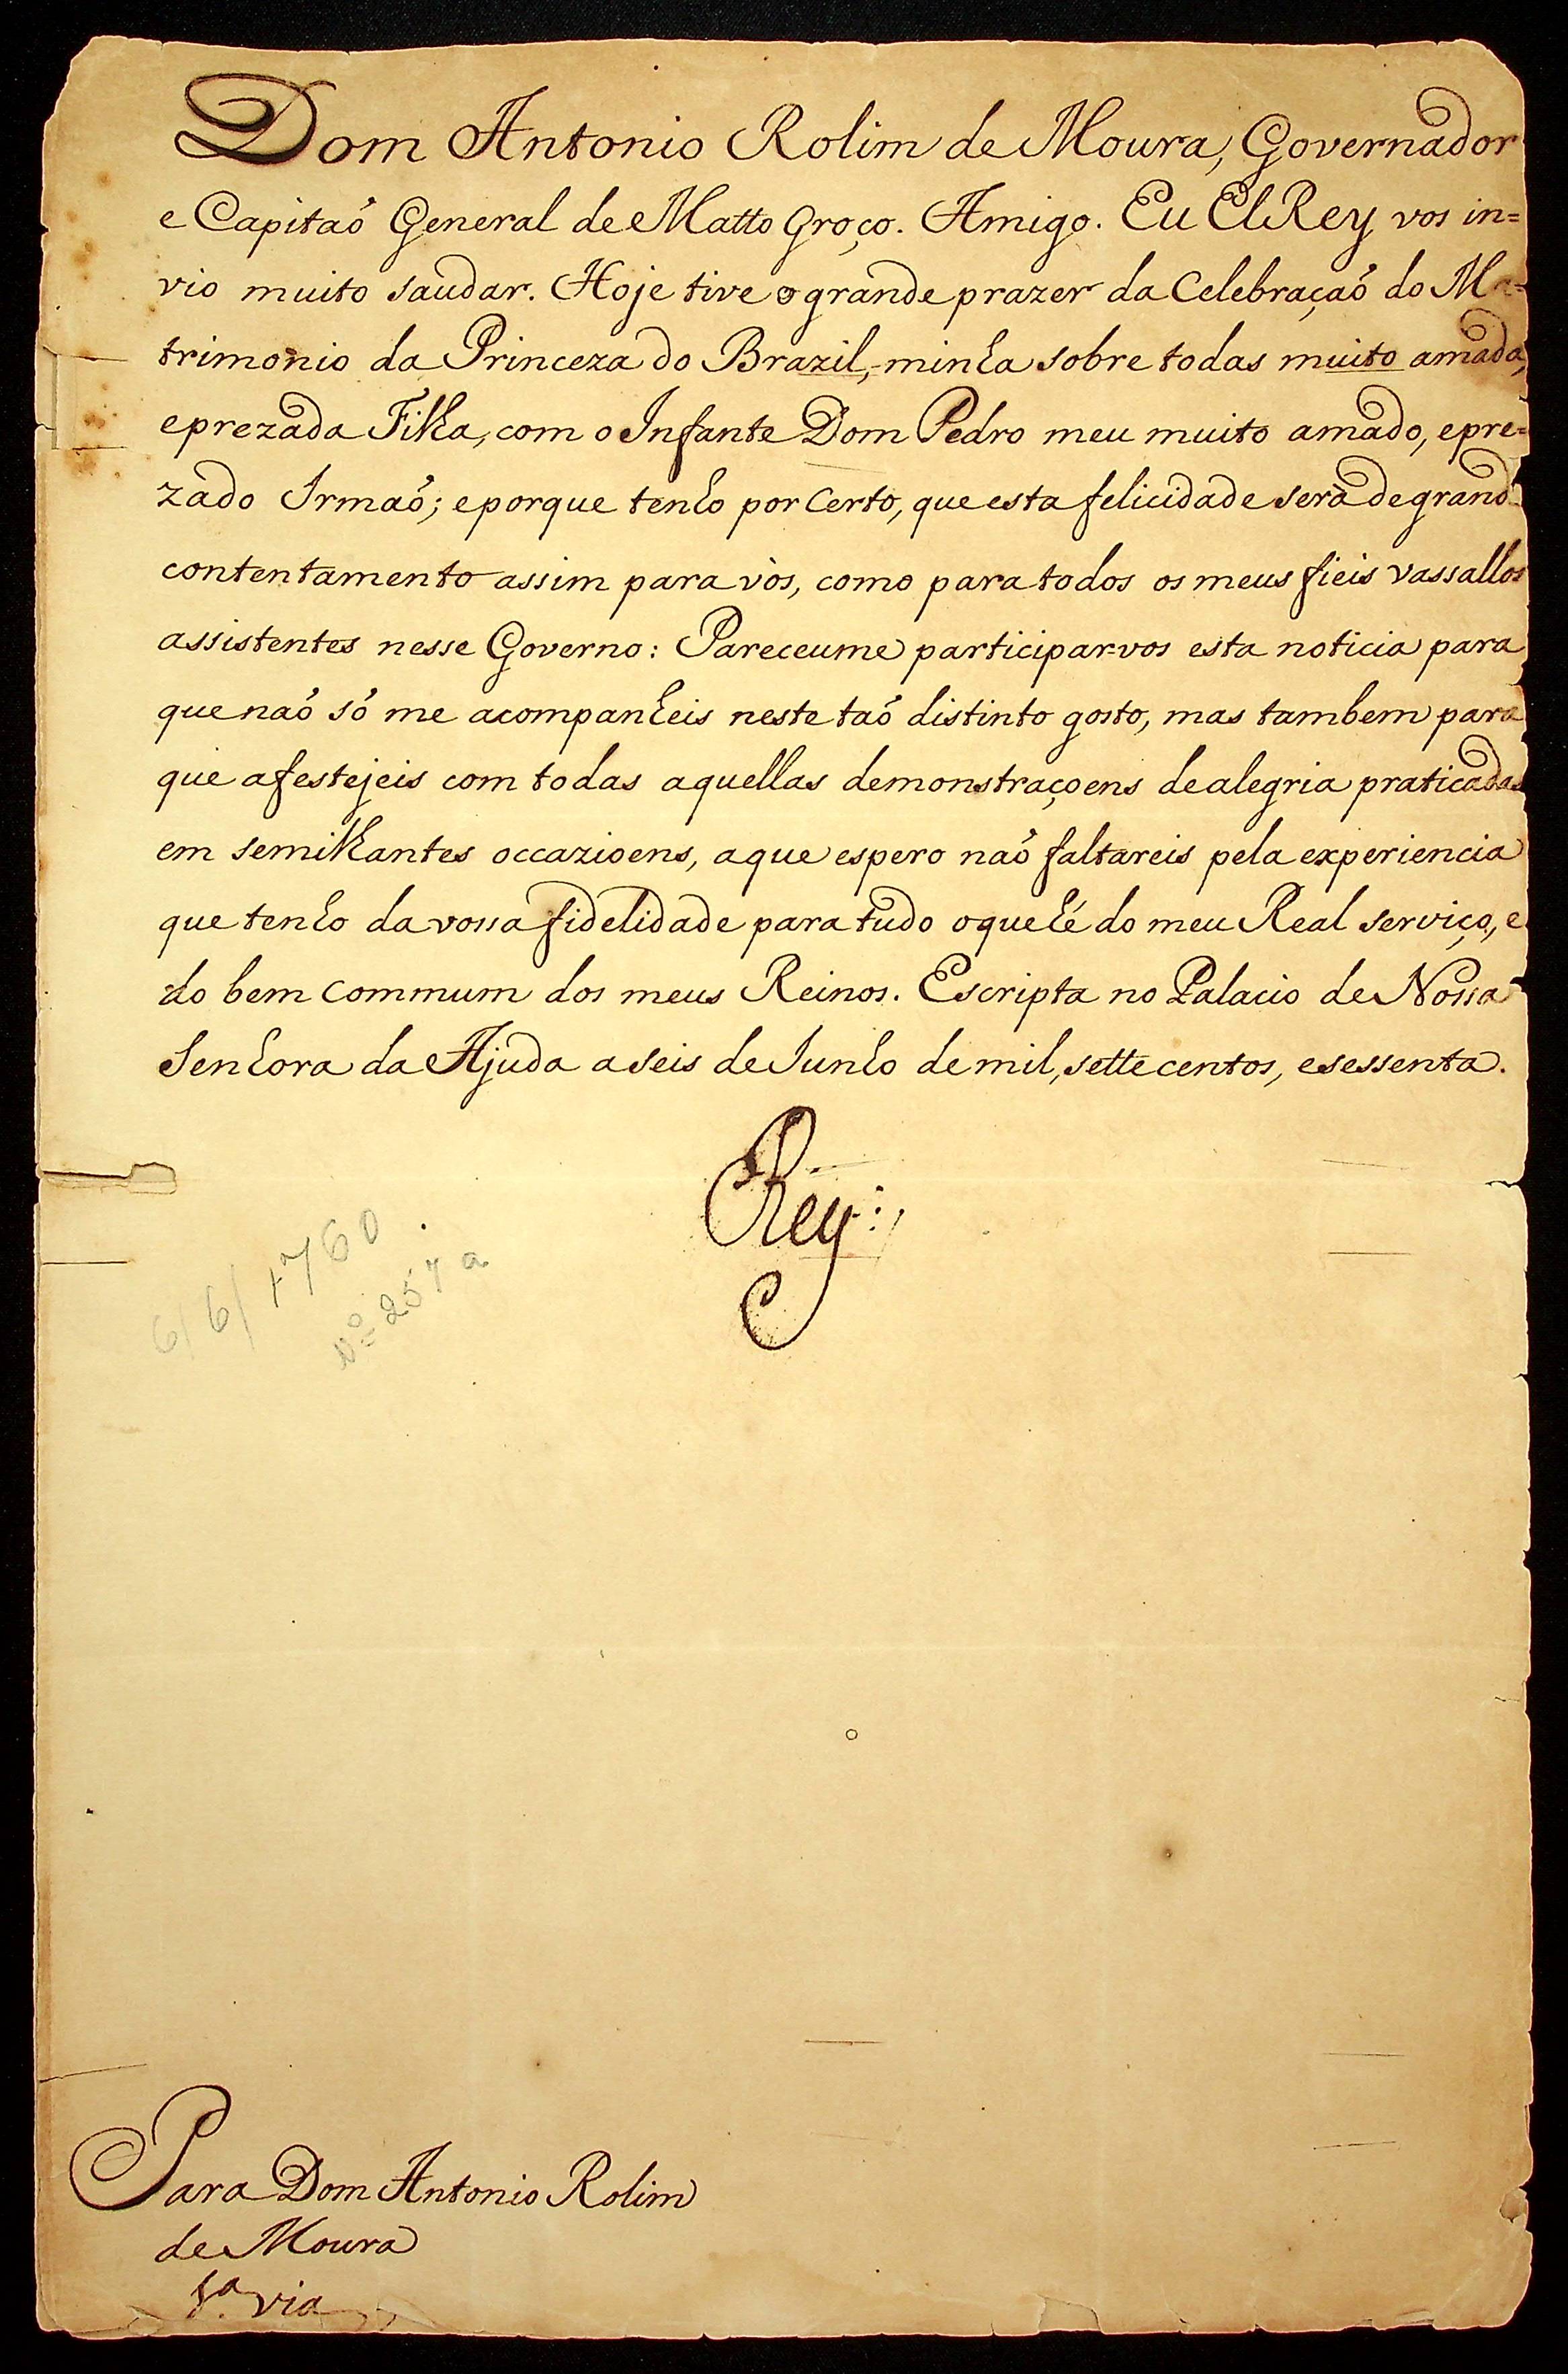 Dom Antonio Rolim de Moura, Governador
e Capitaõ General de Matto Groço. Amigo. Eu ElRey vos in=
vio muito saudar. Hoje tive o grande prazer da Celebraçaõ do Ma=
trimonio da Princeza do Brazil, minha sobre todas muito amada,
e prezada Filha, com o Infante Dom Pedro meu muito amado, e pre=
zado Irmaõ; e porque tenho por certo, que esta felicidade serà de grand
contentamento assim para vòs, como para todos os meus fieis vassallos
assistentes nesse Governo: Pareceume participar=vos esta noticia para
que naõ só me acompanheis neste taõ distinto gosto, mas tambem para
que a festejeis com todas aquellas demonstraçoens de alegria praticadas
em semilhantes occazioens, a que espero naõ faltareis pela experiencia
que tenho da vossa fidelidade para tudo o que hé do meu Real serviço, e
do bem commum dos meus Reinos. Escripta no Palacio de Nossa
Senhora da Ajuda a seis de Junho de mil, settecentos, e sessenta.
Rey:
6/6/1760.
Nº 257a
Para Dom Antonio Rolim
de Moura
1.ª via